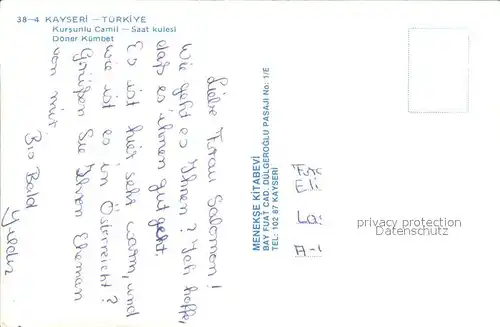 38-4 KAYSERİ - TÜRKİYE
Kurşunlu Camii - Saat kulesi
Döner Kümbet
Liebe Frau Salomon!
Wie geht es Ihnen? Ich hoffe,
daß es ihnen gut geht
Es ist hier sehr warm, und
wie ist es in Österreich?
Grüßen Sie Ihren Eheman
von mir
Bis Bald
Yıldız
MENEKŞE KİTABEVİ
BAY FUAT CAD. DÜLGEROĞLU PASAJI No: 1/E
TEL: 102 87 KAYSERİ
Eli
La
A-
privacy protection
Datenschutz